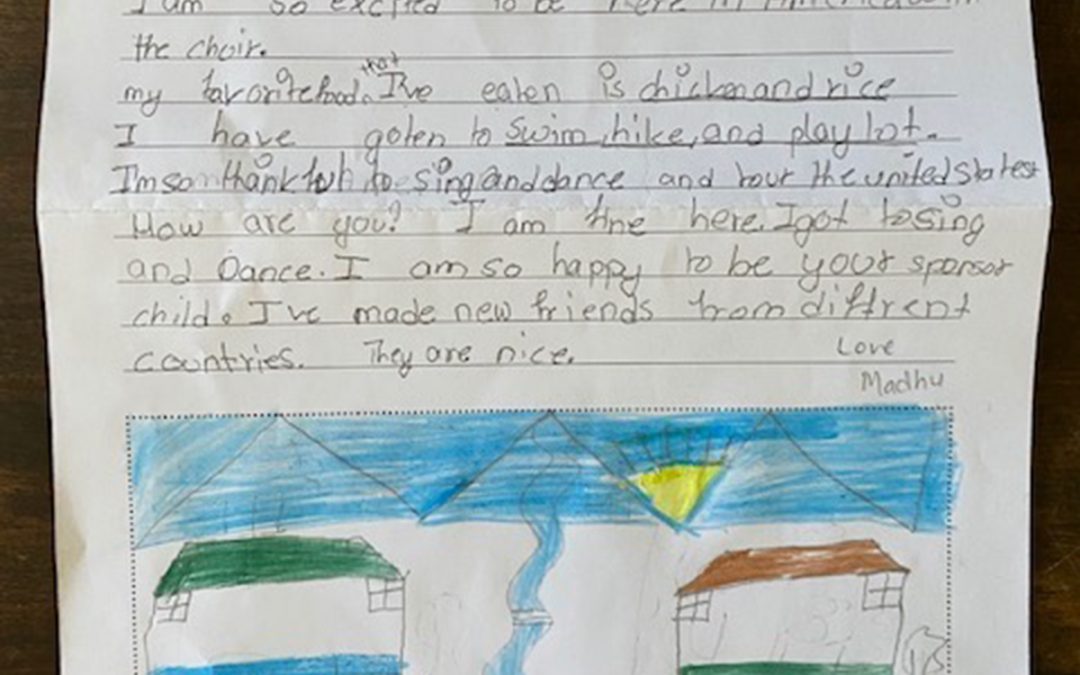 I am so excited to be here in America with
the choir.
my favorite food that I've eaten is chicken and rice
I have goten to swim, hike, and play lot.
I'm so thankful to sing and dance and tour the united states
How are you? I am fine here. I got to sing
and Dance. I am so happy to be your sponsor
child. I've made new friends from diffrent
countries. They are nice. Love
Madhu